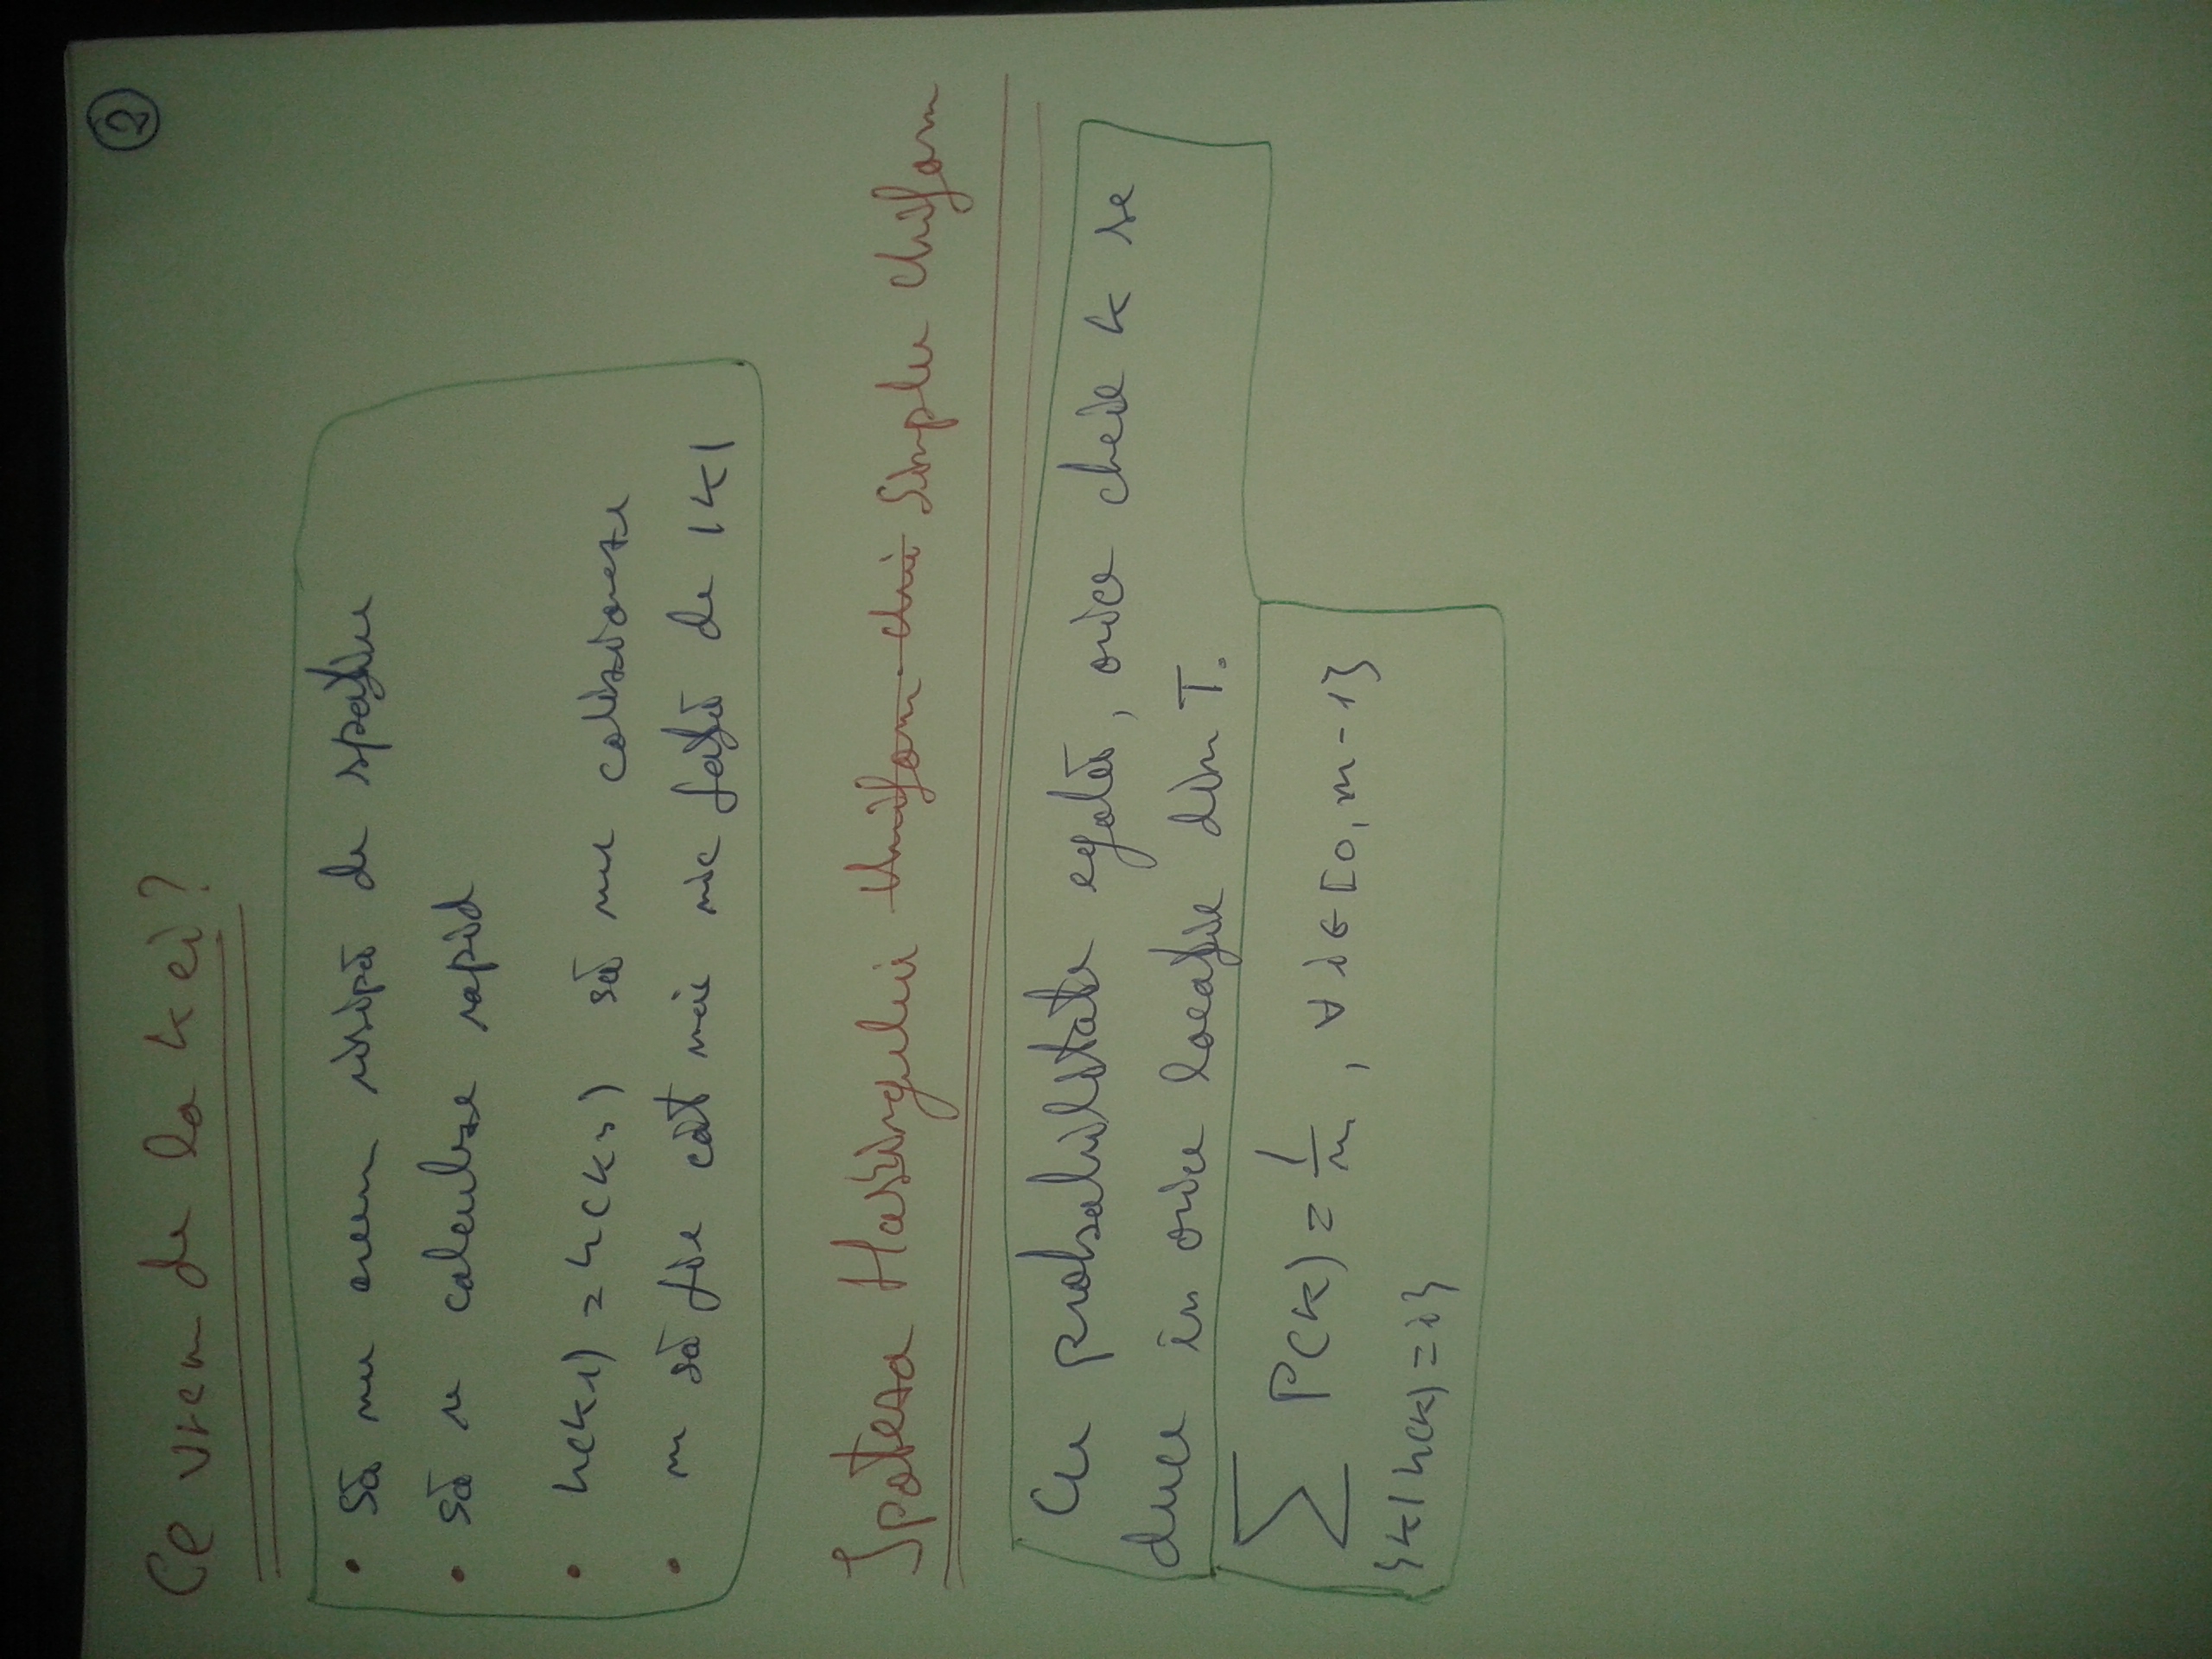 2
Ce vrem de la h ei?
• Să nu avem risipă de spațiu
• să se calculeze rapid
• h(k1) = h(k2) să nu colisioneze
• m să fie cât mai mic față de |K|
Ipoteza Hashingului Uniform Simplu Uniform
Cu probabilitate egală, orice cheie k se
duce in orice locație din T.
∑ P(k) = 1/m, ∀ i ∈ [0, m-1}
{k | h(k) = i}